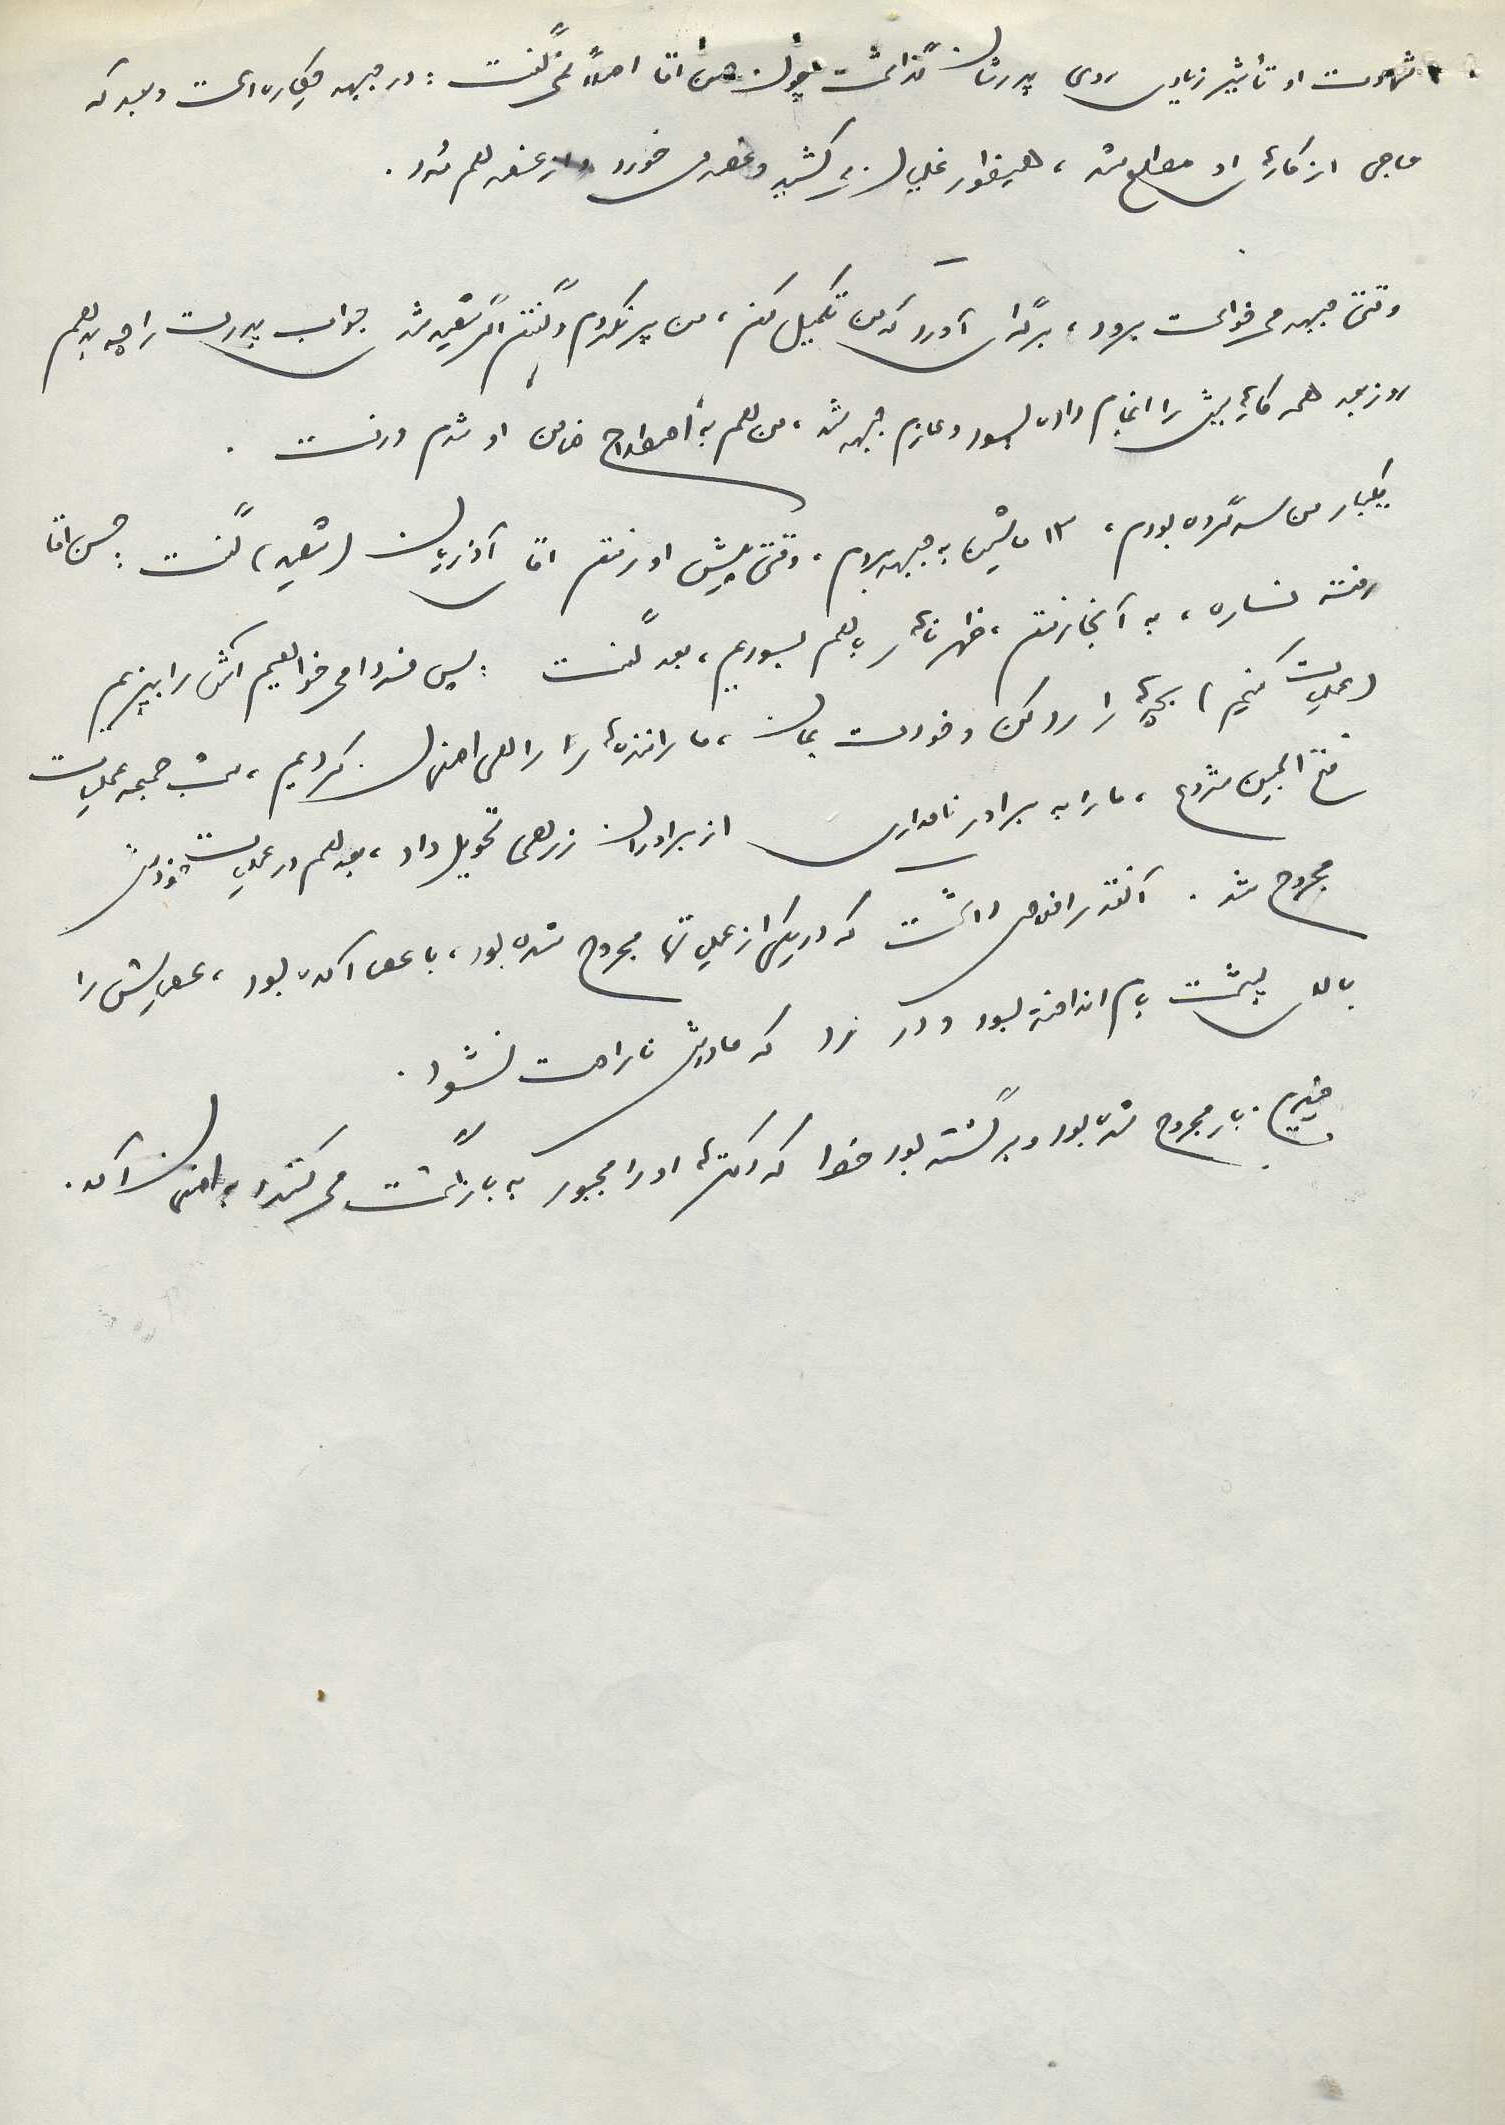 شهادت او تأثیر زیادی روی پدرشان گذاشت چون حسن آقا اصلاً نمی‌گفت: در جبهه چکاره است و بعد که
حاجی از کارهای او مطلع شد، همینطور خیلی زجر کشید و غصه می خورد و از غصه هم مُرد.
وقتی جبهه می خواست برود، برگه‌ای آورد که من تکمیل کنم، من پر نکردم و گفتم اگر شهید شد جواب پدرت را چه بدهم
روز بعد همه کارهایش را انجام داده بود و عازم جبهه شد، من هم به اصطلاح ضامن او شدم و رفت.
یکبار من سرگروه بودم، ۱۳ ماشین به جبهه بردم، وقتی پیش او رفتم آقا آذریان (شهید) گفت: حسن آقا
رفته نساره، به آنجا رفتم، ظهر ناهار با هم بودیم، بعد گفت: پس فردا می خواهیم آش را بپزیم
(عملیات کنیم) بچه‌ها را رد کن و خودت بمان، ما راننده‌ها را راهی اصفهان کردیم، شب جمعه عملیات
فتح المبین شروع، ما را به برادر نامداری از برادران زرهی تحویل داد، بعد هم در عملیات خودش
مجروح شد. آنقدر اخلاص داشت که در یکی از عملیاتها مجروح شده بود، با عصا آمده بود، عصایش را
بالای پشت بام انداخته بود و در زد که مادرش ناراحت نشود.
چندین بار مجروح شده بود و برگشته بود خط که دکترها او را مجبور به بازگشت می کنند و به اصفهان آمد.